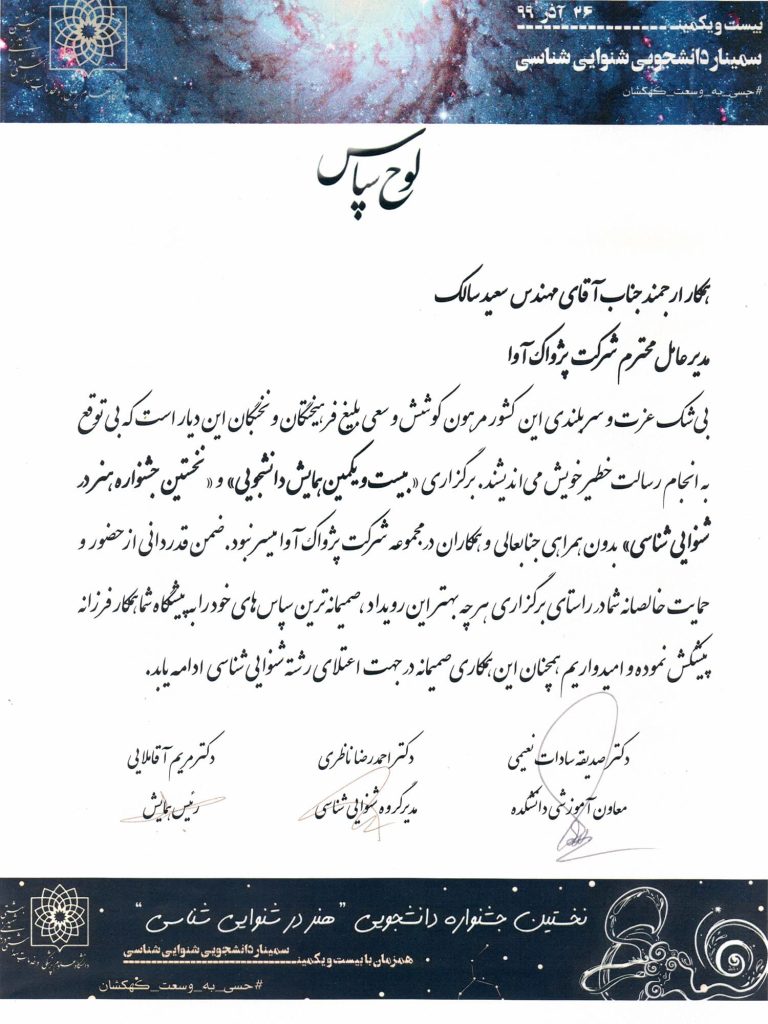 بیست و یکمین
۲۶ آذر ۹۹
سمینار دانشجویی شنوایی شناسی
#حسی_به_وسعت_کهکشان
لوح سپاس
همکار ارجمند جناب آقای مهندس سعید سالک
مدیر عامل محترم شرکت پژواک آوا
بی شک عزت و سربلندی این کشور مرهون کوشش و سعی بلیغ فرهیختگان و نخبگان این دیار است که بی توقع
به انجام رسالت خطیر خویش می اندیشند. برگزاری «بیست و یکمین همایش دانشجویی» و «نخستین جشنواره هنر در
شنوایی شناسی» بدون همراهی جنابعالی و همکاران در مجموعه شرکت پژواک آوا میسر نبود. ضمن قدردانی از حضور و
حمایت خالصانه شما در راستای برگزاری هر چه بهتر این رویداد، صمیمانه ترین سپاس های خود را به پیشگاه شما همکار فرزانه
پیشکش نموده و امیدواریم همچنان این همکاری صمیمانه در جهت اعتلای رشته شنوایی شناسی ادامه یابد.
دکتر صدیقه سادات نعیمی
دکتر احمدرضا ناظری
دکتر مریم آقاملایی
معاون آموزشی دانشکده
مدیر گروه شنوایی شناسی
رئیس همایش
نخستین جشنواره دانشجویی "هنر در شنوایی شناسی"
سمینار دانشجویی شنوایی شناسی
همزمان با بیست و یکمین
#حسی_به_وسعت_کهکشان